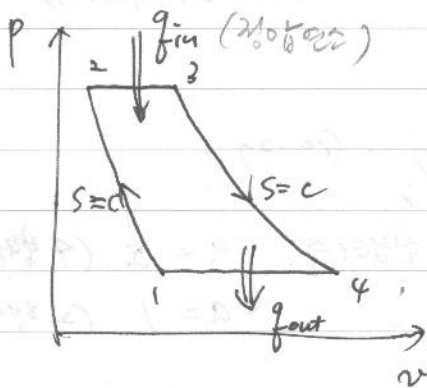 P
q in (정압연소)
2 3
S=C
S=C
1 4
q out
v